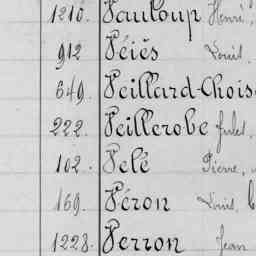 1216. Pauloup Henri,
912 Péiés Louis.
649. Peillard-Chois
222. Peillerobe Jules.
102. Pelé Pierre,
169. Péron Louis,
1228. Perron Jean